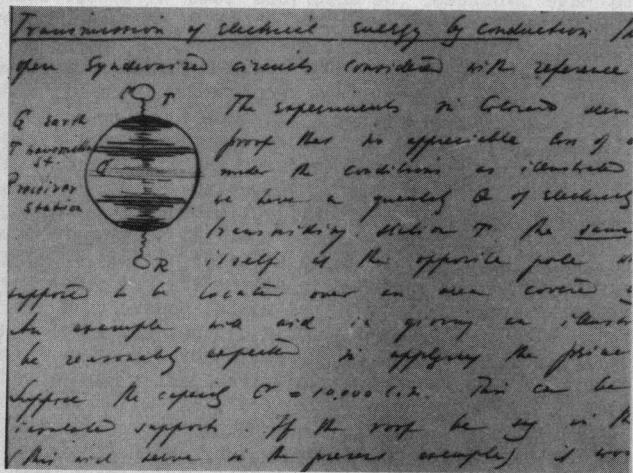 Transmission of electrical energy by conduction
open synchronized circuits considered with reference
C T
The experiments in Colorado
G earth
proof that no appreciable loss of
T transmitter
under the conditions as illustrated
st.
we have a quantity Q of electricity
Receiver
transmitting station T the same
station
itself at the opposite pole
R
supposed to be located over an area covered
An example will aid in giving an
be reasonably expected in applying the
Suppose the capacity C = 10,000 c.m. This can be
insulated supports. If the roof be say in the
(this will serve in the present example) it